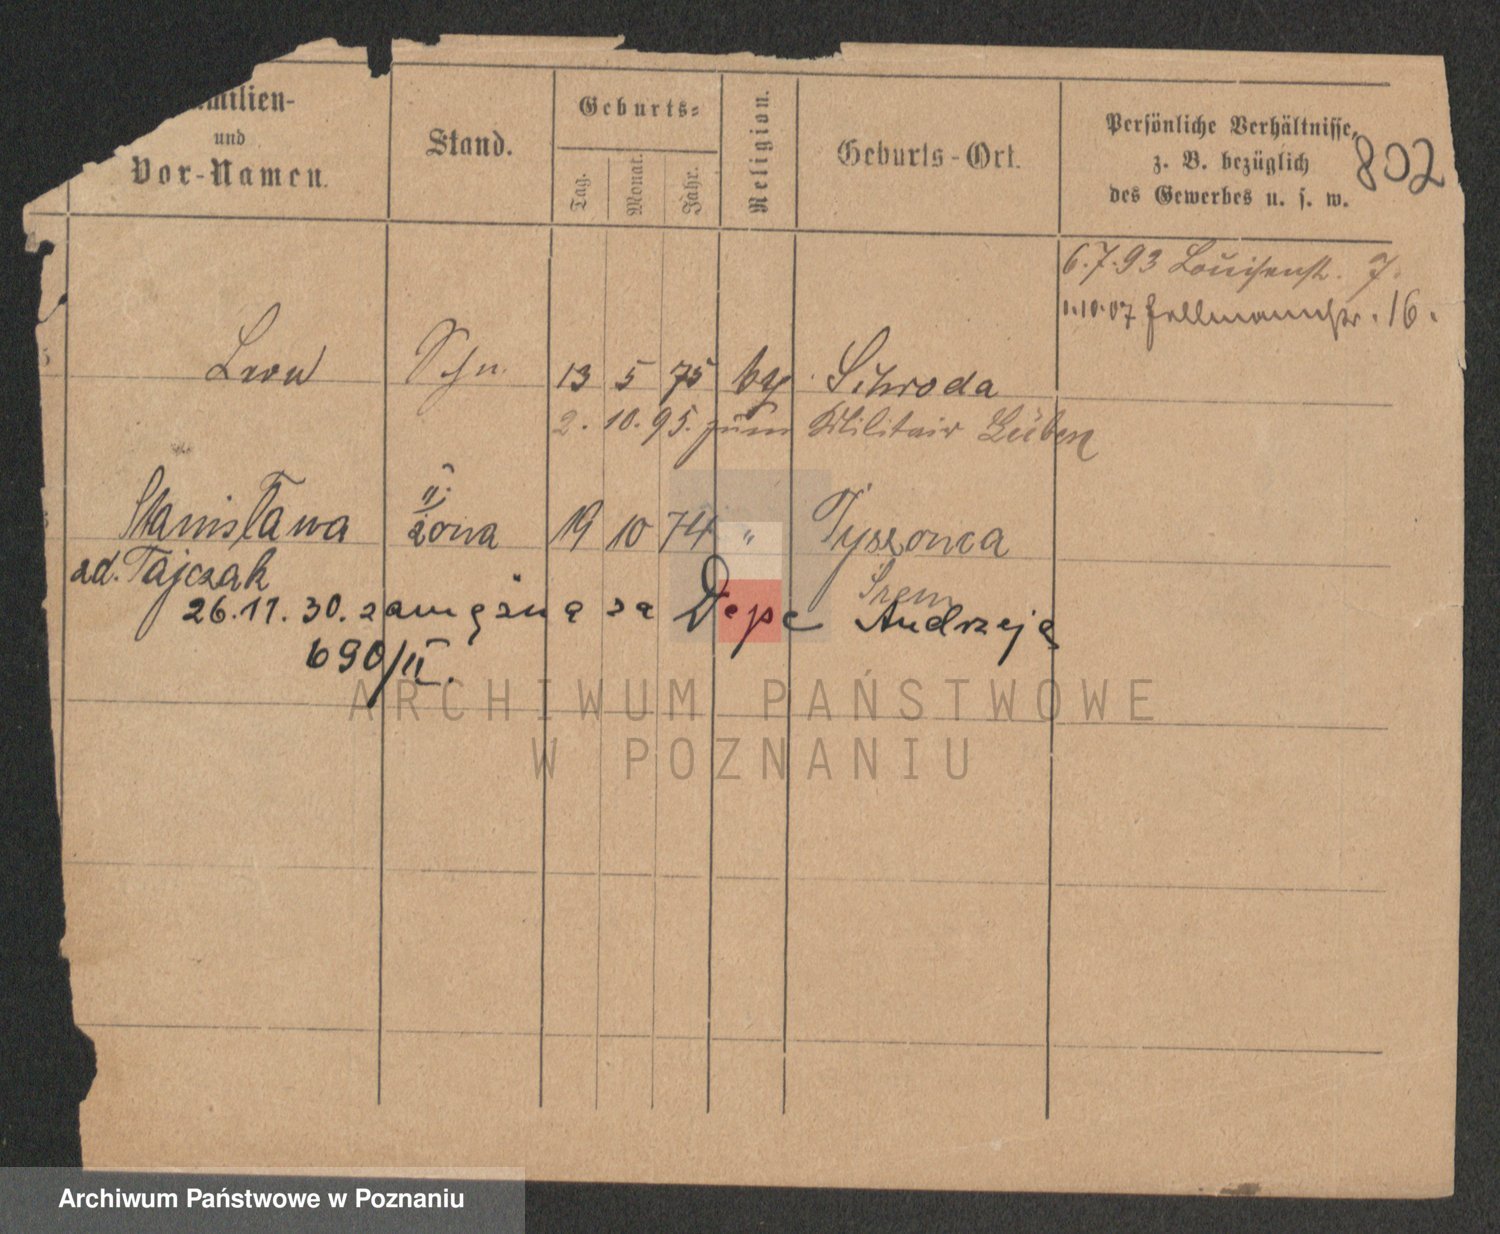 Familien-
und
Vor-Namen.
Stand.
Geburts=
Tag.
Monat.
Jahr.
Religion.
Geburts-Ort.
Persönliche Verhältnisse,
z. B. bezüglich
des Gewerbes u. s. w.
802
6.7.93 Louisenstr. 7.
1.10.07 Hellmannstr. 16.
Leon Sohn 13 5 75 Schroda
2. 10. 95. zum Militair Lüben
Stanisława II. żona 19 10 74 "
zd. Tajczak
Śrem
26.11.30. zamężna za Depc Andrzeja
690/II.
ARCHIWUM PAŃSTWOWE
W POZNANIU
Archiwum Państwowe w Poznaniu